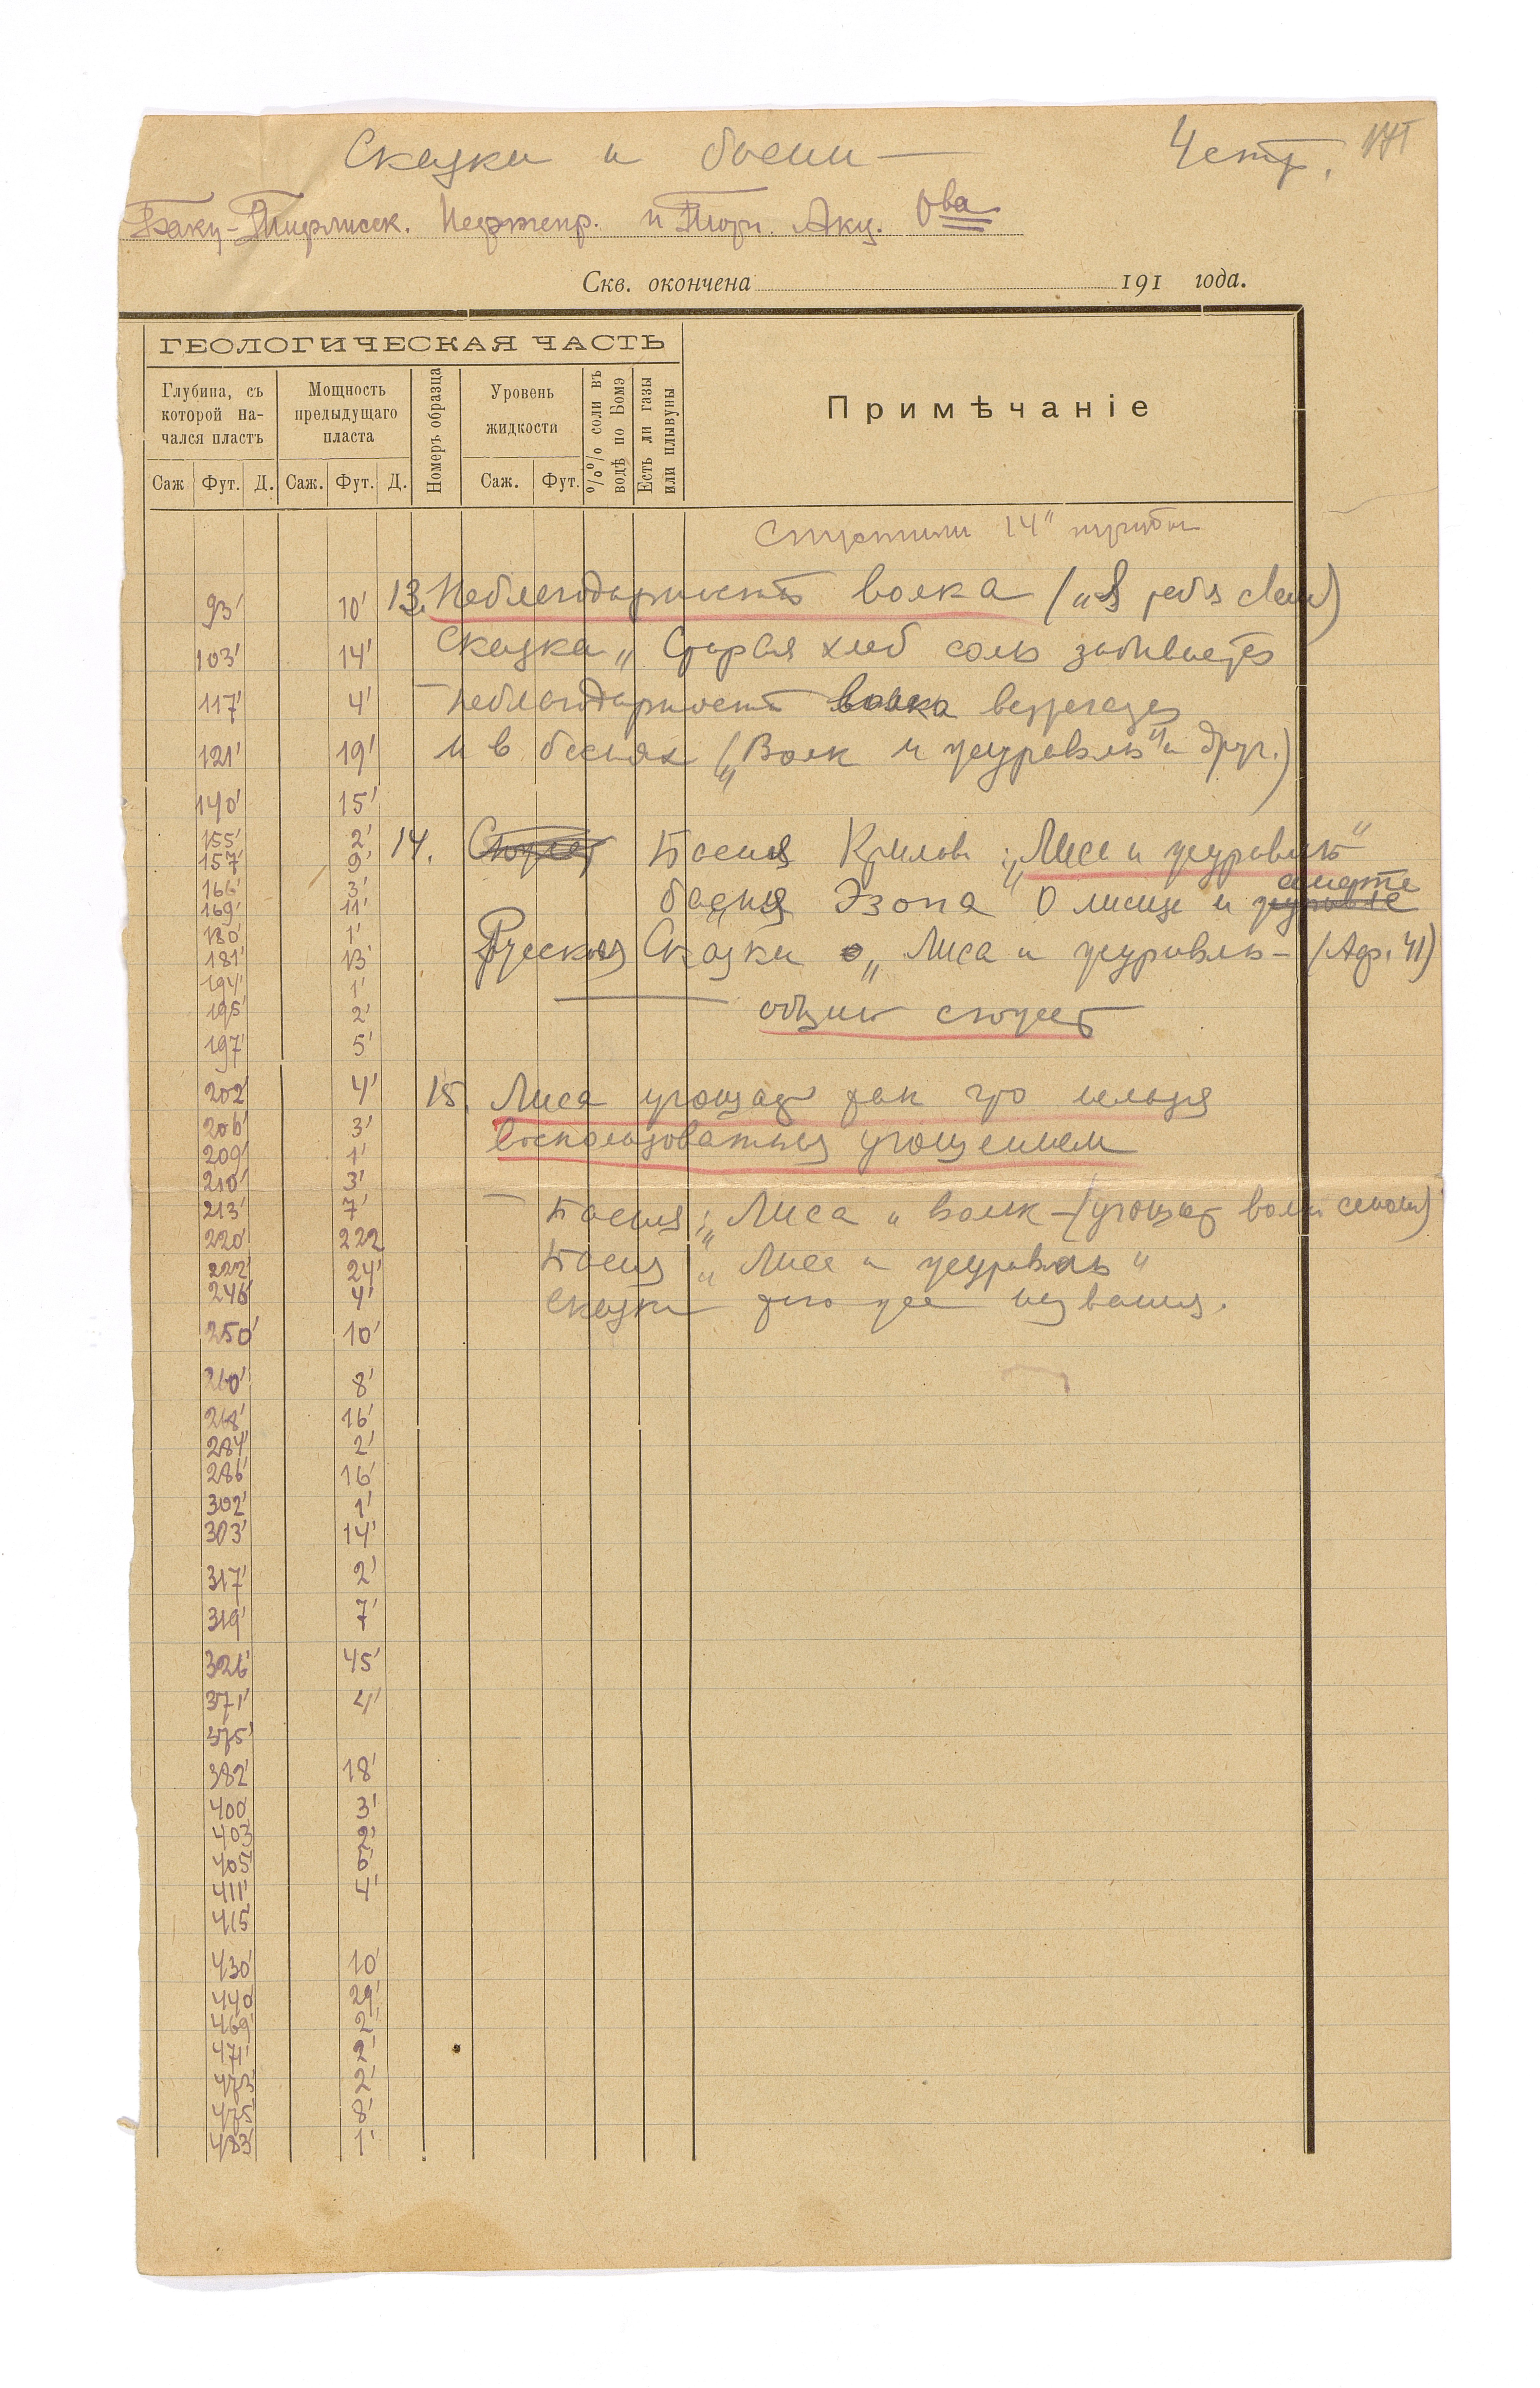 Сказки и басни — 4 стр.
Баку-Тифлисск. Нефтепр. и Торг. Акц. О-ва
Скв. окончена 191 года.
ГЕОЛОГИЧЕСКАЯ ЧАСТЬ
Примѣчаніе
Глубина, съ которой на-чался пластъ
Мощность предыдущаго пласта
Номеръ образца
Уровень жидкости
%% соли въ водѣ по Бомэ
Есть ли газы или плывуны
Саж Фут. Д. Саж. Фут. Д. Саж. Фут.
Спустили 14" трубы
93' 10' 13. Неблагодарность волка („Я тебя съем)
103' 14' Сказка „Старая хлеб соль забывается
117' 4' – Неблагодарность волка
121' 19' и в баснях („Волк и журавль" и друг.)
140' 15'
155' 2' 14. Сюжет Басня Крылова: „Лиса и журавль"
157' 9'
166' 3' смерте
169' 11' басня Эзопа О лисице и журавле
180' 1'
181' 13' Русская Сказки „Лиса и журавль – (Аф. 41)
194' 1'
195' 2' общий сюжет
197' 5'
202' 4' 15. Лиса угощает так что нельзя
206' 3' воспользоваться угощением
209' 1'
210' 3'
213' 7' – Басня: „Лиса и волк – (угощает волк
220' 222
222' 24' Басня „Лиса и журавль"
246' 4' Сказки того же названия.
250' 10'
260' 8'
268' 16'
284' 2'
286' 16'
302' 1'
303' 14'
317' 2'
319' 7'
326' 45'
371' 4'
375'
382' 18'
400' 3'
403 2'
405' 6'
411' 4'
415'
430' 10'
440' 29'
469' 2'
471' 2'
473' 2'
475' 8'
483' 1'